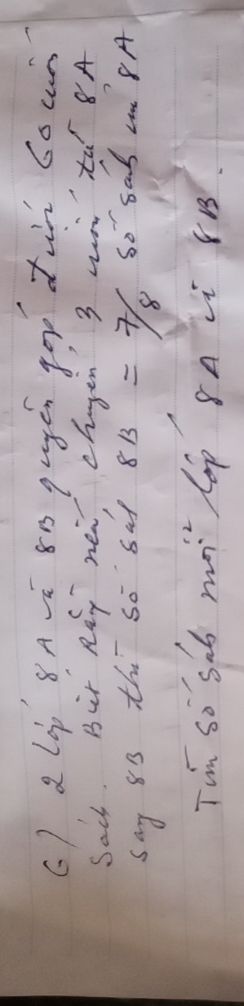 6) 2 lớp 8A và 8B quyên góp được 60 cuốn
sách. Biết rằng nếu chuyển 3 cuốn từ 8A
sang 8B thì số sách 8B = 7/8 số sách của 8A
Tìm số sách mỗi lớp 8A và 8B.